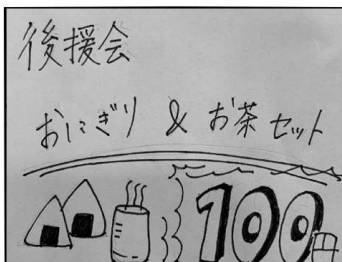 後援会
おにぎり & お茶 セット
100円